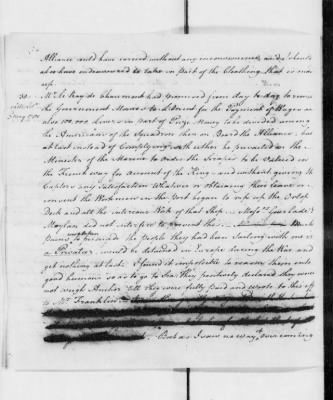 Alliance could have carried without any inconvenience, and I should
also have endeavoured to take in Part of the Cloathing that is made
up.
Mr. le Ray de Chaumont had promised from day to day to receive
the Government Money to L'Orient for the Payment of Wages or
also 100,000 Livres in part of Prize Money to be divided among
the Americans of the Squadron then on Board the Alliance; but
at last instead of Complying with either he persuaded the
Minister of the Marine to Order the Serapis to be Valued in
the French way for Account of the King and without giving the
Captors any Satisfaction Whatever or obtaining their leave or
consent the Workmen in the Port began to rip up the Orlop
Deck and all the interiour Part of that Ship
Moylan did not interfere to prevent this
to persuade the People they had been Lawfully with me in
a Privateer, would be detained in Europe during the War and
get nothing at last. I found it impossible to reason them into
good humour so as to go to Sea: They positively declared they would
not weigh Anchor till they were fully paid and wrote to this effect
to Mr. Franklin
But as I saw no way of overcoming